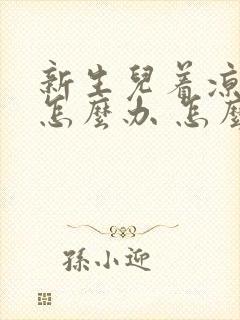 新生兒着凉
怎麼办 怎麼
孫小迎